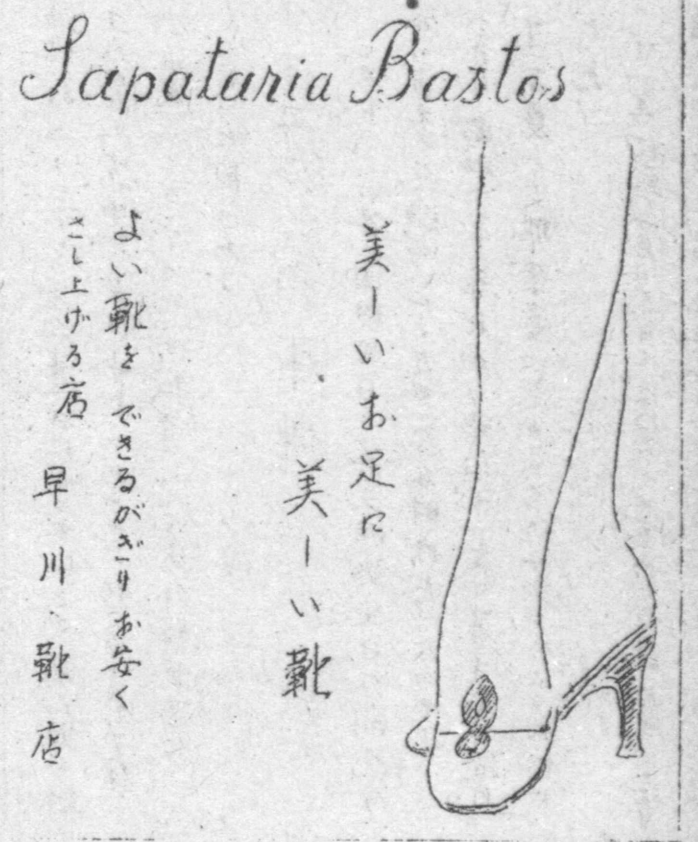 Sapataria Bastos
美しいお足に
美しい靴
よい靴を できるがぎりお安く
さし上げる店
早川靴店